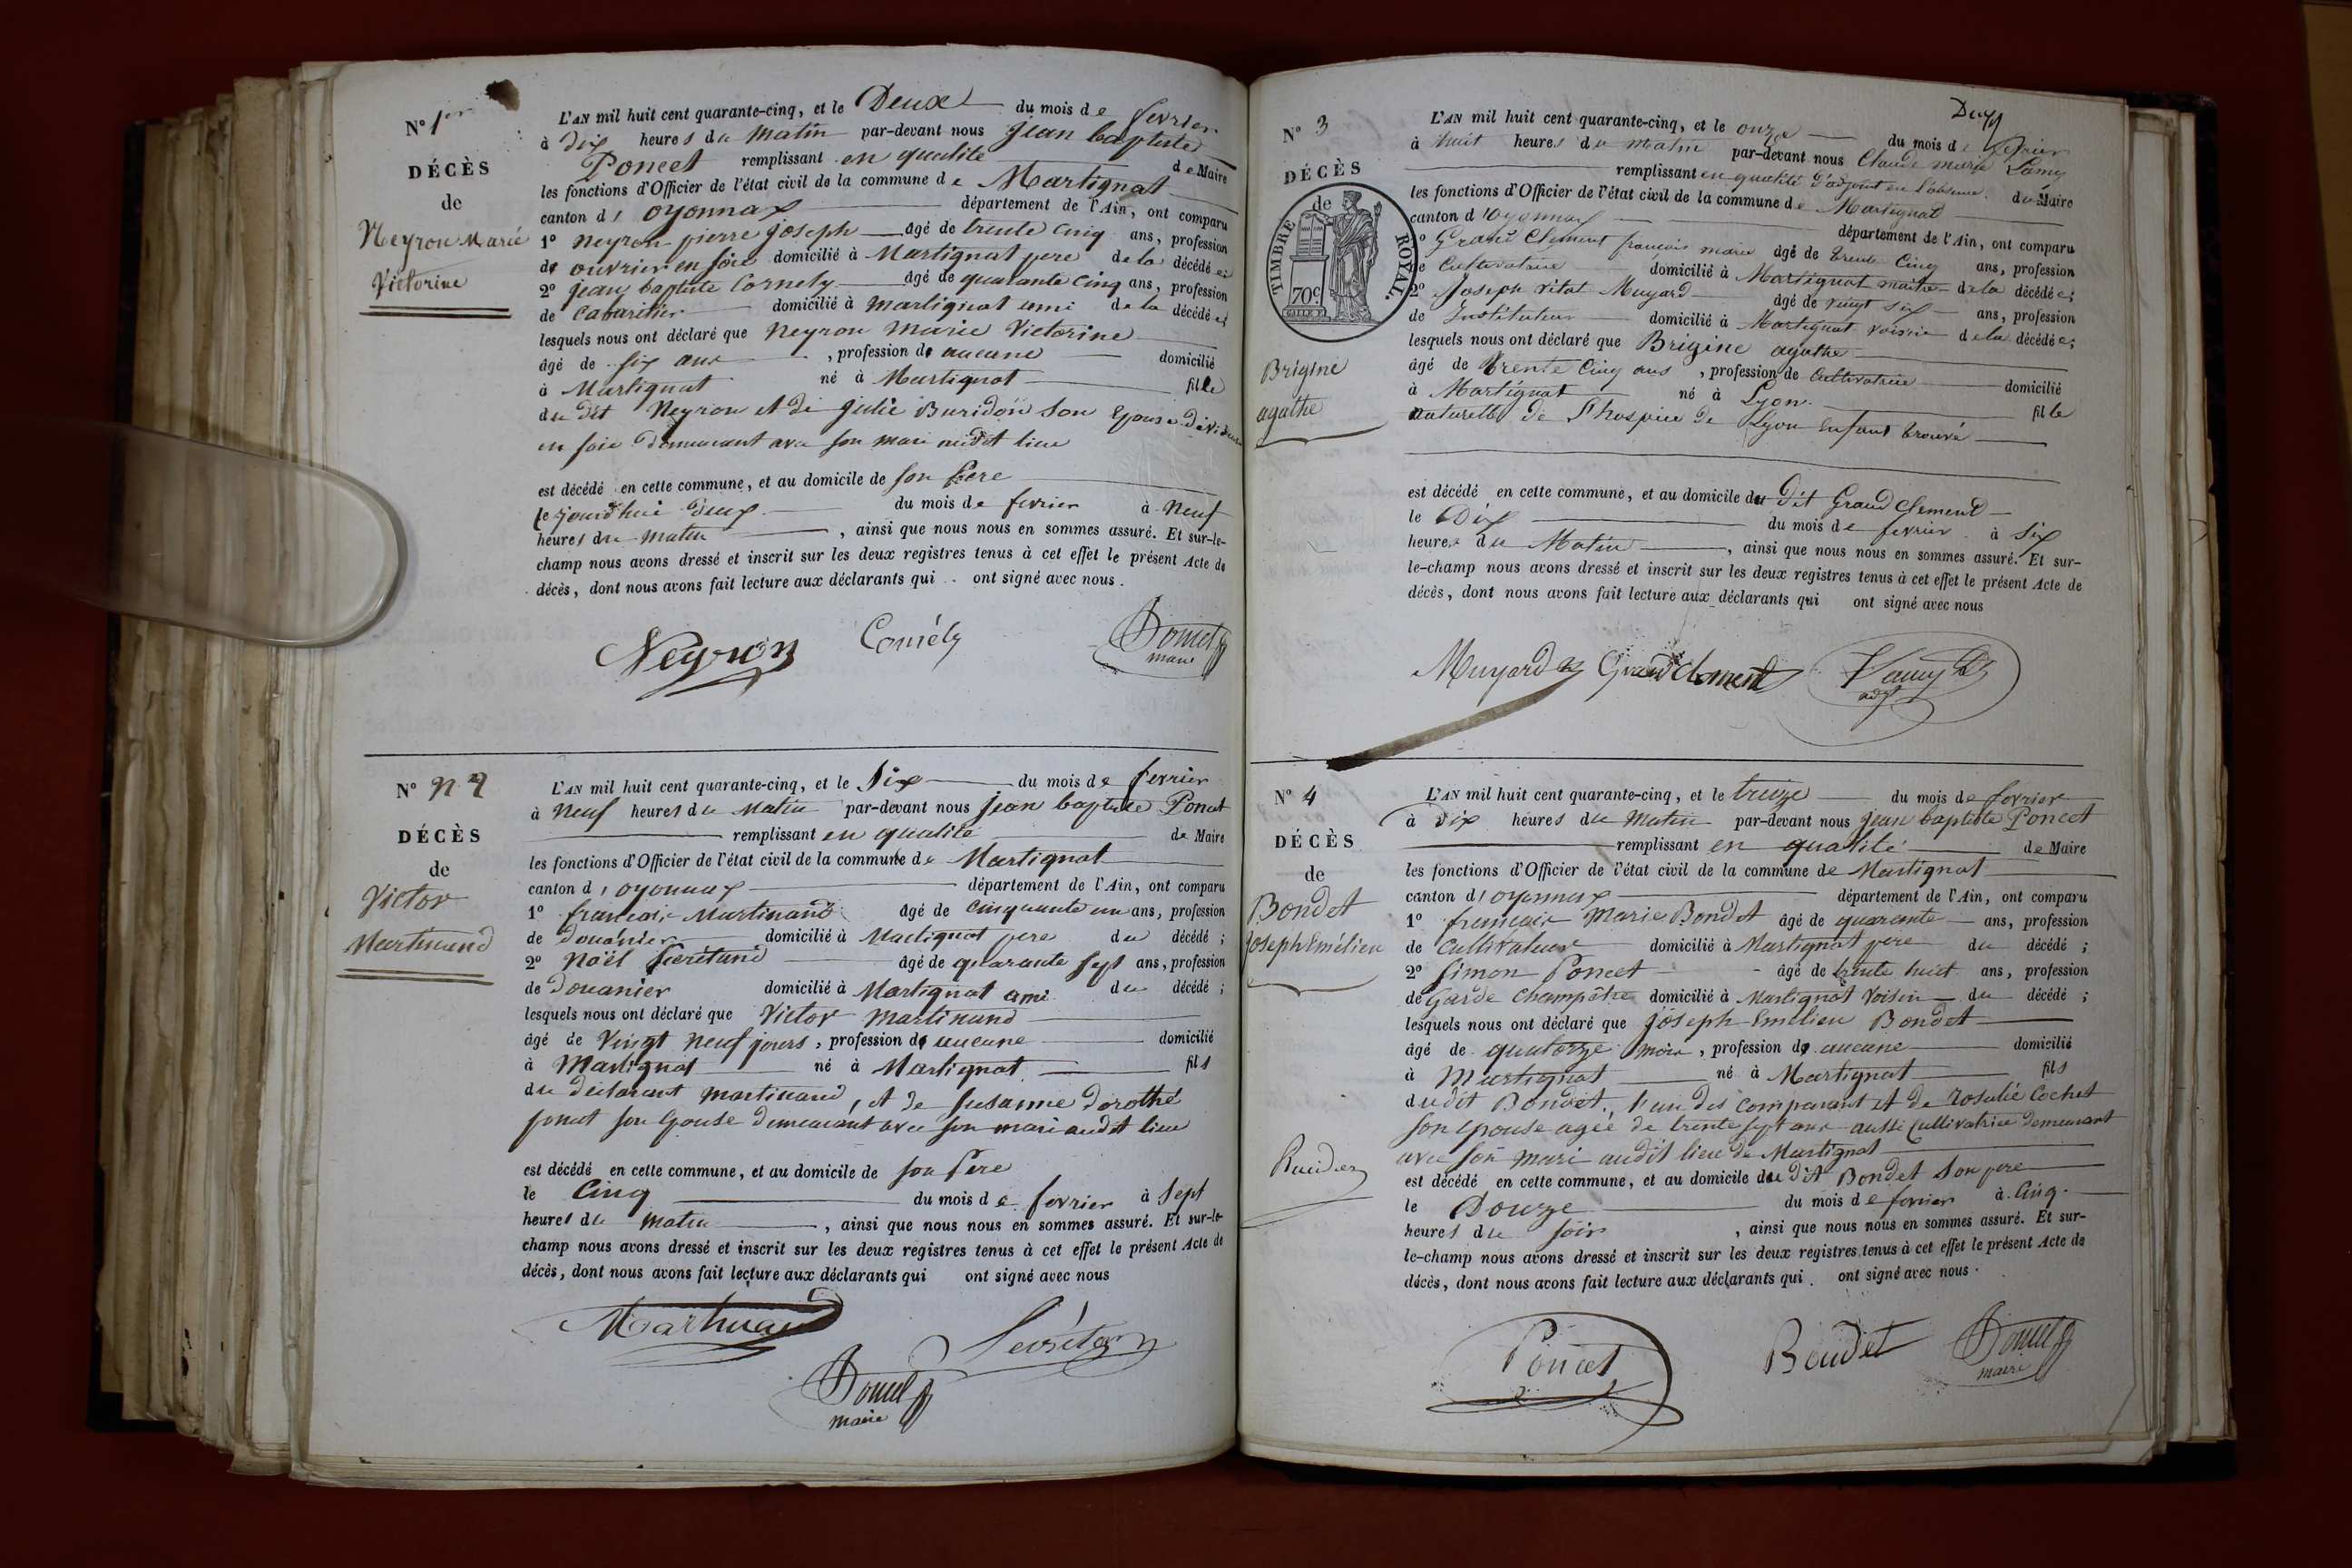 N° 1er
DÉCÈS
de
Neyron Marie
Victorine
L'AN mil huit cent quarante-cinq, et le Deux du mois de fevrier
à dix heures du Matin par-devant nous jean baptiste
Poncet remplissant en qualité de Maire
les fonctions d'Officier de l'état civil de la commune de Martignat
canton d'oyonnax département de l'Ain, ont comparu
1° neyron pierre joseph âgé de trente cinq ans, profession
de ouvrier en soie domicilié à Martignat pere de la décédée;
2° jean baptiste Cornely âgé de quarante cinq ans, profession
de Cabaretier domicilié à martignat ami de la décédée;
lesquels nous ont déclaré que Neyron Marie Victorine
âgé de six ans, profession de aucune domicilié
à Martignat né à Martignat fille
du dit Neyron et de julie Buridon son Epouse
en soie demeurant avec son mari audit lieu
est décédé en cette commune, et au domicile de son Pere
le jourd'hui deux du mois de fevrier à Neuf
heures du matin, ainsi que nous nous en sommes assuré. Et sur-le-
champ nous avons dressé et inscrit sur les deux registres tenus à cet effet le présent Acte de
décès, dont nous avons fait lecture aux déclarants qui ont signé avec nous.
Neyron Cornély Poncet
maire
N° 2
DÉCÈS
de
Victor
Martinand
L'AN mil huit cent quarante-cinq, et le Six du mois de fevrier
à Neuf heures du Matin par-devant nous jean baptiste Poncet
remplissant en qualité de Maire
les fonctions d'Officier de l'état civil de la commune de Martignat
canton d'oyonnax département de l'Ain, ont comparu
1° francois Martinand âgé de cinquante un ans, profession
de douánier domicilié à Martignat pere du décédé;
2° Noël âgé de quarante sept ans, profession
de douanier domicilié à Martignat ami du décédé;
lesquels nous ont déclaré que Victor Martinand
âgé de Vingt neuf jours, profession de aucune domicilié
à Martignat né à Martignat fils
du déclarant martinand, et de susanne dorothé
ponset son Epouse demeurant avec son mari audit lieu
est décédé en cette commune, et au domicile de son Pere
le Cinq du mois de fevrier à Sept
heures du matin, ainsi que nous nous en sommes assuré. Et sur-le-
champ nous avons dressé et inscrit sur les deux registres tenus à cet effet le présent Acte de
décès, dont nous avons fait lecture aux déclarants qui ont signé avec nous
Martinand
Poncet
maire
N° 3
DÉCÈS
de
TIMBRE ROYAL.
70c
Brigine
agathe
L'AN mil huit cent quarante-cinq, et le onze du mois de fevrier
à huit heures du matin par-devant nous Claude marie Lamy
remplissant en qualité d'adjoint en l'absence du Maire
les fonctions d'Officier de l'état civil de la commune de Martignat
canton d'oyonnax département de l'Ain, ont comparu
1° Grand Clement françois marie âgé de trente Cinq ans, profession
de Cultivateur domicilié à Martignat maitre de la décédée;
2° Joseph Vital Muyard âgé de vingt six ans, profession
de Instituteur domicilié à Martignat voisin de la décédée;
lesquels nous ont déclaré que Brigine agathe
âgé de trente Cinq ans, profession de Cultivatrice domicilié
à Martignat né à Lyon. fille
naturelle de l'hospice de Lyon Enfant trouvé
est décédé en cette commune, et au domicile du dit Grand Clement
le Dix du mois de fevrier à Six
heures du Matin, ainsi que nous nous en sommes assuré. Et sur-
le-champ nous avons dressé et inscrit sur les deux registres tenus à cet effet le présent Acte de
décès, dont nous avons fait lecture aux déclarants qui ont signé avec nous
Muyard Grand Clement Lamy
adjt
N° 4
DÉCÈS
de
Bondet
Joseph Emélien
L'AN mil huit cent quarante-cinq, et le treize du mois de fevrier
à Dix heures du Matin par-devant nous jean baptiste Poncet
remplissant en qualité de Maire
les fonctions d'Officier de l'état civil de la commune de Martignat
canton d'oyonnax département de l'Ain, ont comparu
1° francois Marie Bondet âgé de quarante ans, profession
de Cultivateur domicilié à Martignat pere du décédé;
2° Simon Poncet âgé de trente huit ans, profession
de Garde Champêtre domicilié à Martignat Voisin du décédé;
lesquels nous ont déclaré que joseph Emélien Bondet
âgé de quatorze mois, profession de aucune domicilié
à Martignat né à Martignat fils
du dit Bondet, l'un des comparant et de Rosalie Cochet
son epouse agée de trente sept ans aussi Cultivatrice demeurant
avec son mari audit lieu de Martignat
est décédé en cette commune, et au domicile du dit Bondet son pere
le Douze du mois de fevrier à Cinq.
heures du soir, ainsi que nous nous en sommes assuré. Et sur-
le-champ nous avons dressé et inscrit sur les deux registres tenus à cet effet le présent Acte de
décès, dont nous avons fait lecture aux déclarants qui ont signé avec nous.
Poncet Bondet Poncet
maire